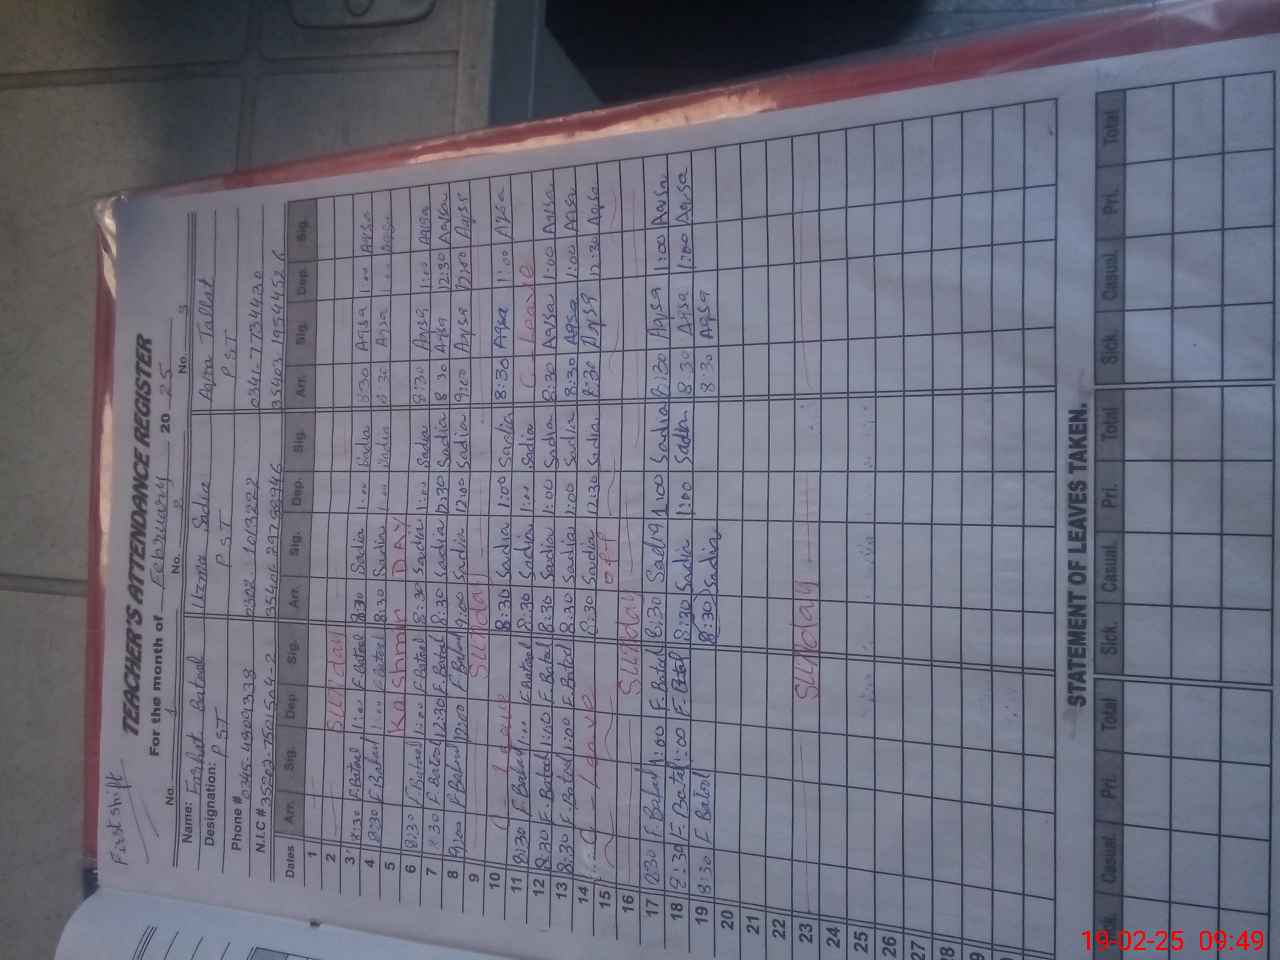 First shift
TEACHER'S ATTENDANCE REGISTER
For the month of February 2025
No. 1 No. 2 No. 3
Name: Farhat Batool Uzma Sadia Aqsa Tallat
Designation: PST PST PST
Phone # 0345-4909338 0302 1013222 0341-7734430
N.I.C #
Dates Arr. Sig. Dep Sig. Arr. Sig. Dep. Sig. Arr. Sig. Dep. Sig.
1
2 Sunday
3 8:30 F.Batool 1:00 F.Batool 8:30 Sadia 1:00 Sadia 8:30 Aqsa 1:00 Aqsa
4 8:30 F.Batool 1:00 F.Batool 8:30 Sadia 1:00 Sadia 8:30 Aqsa 1:00 Aqsa
5 Kashmir DAY
6 8:30 F.Batool 1:00 F.Batool 8:30 Sadia 1:00 Sadia 8:30 Aqsa 1:00 Aqsa
7 8:30 F.Batool 12:30 F.Batool 8:30 Sadia 12:30 Sadia 8:30 Aqsa 12:30 Aqsa
8 9:00 F.Batool 12:00 F.Batool 9:00 Sadia 12:00 Sadia 9:00 Aqsa 12:00 Aqsa
9 Sunday
10 C - Leave 8:30 Sadia 1:00 Sadia 8:30 Aqsa 1:00 Aqsa
11 8:30 F.Batool 1:00 F.Batool 8:30 Sadia 1:00 Sadia C. Leave
12 8:30 F.Batool 1:00 F.Batool 8:30 Sadia 1:00 Sadia 8:30 Aqsa 1:00 Aqsa
13 8:30 F.Batool 1:00 F.Batool 8:30 Sadia 1:00 Sadia 8:30 Aqsa 1:00 Aqsa
14 C - Leave 8:30 Sadia 12:30 Sadia 8:30 Aqsa 12:30 Aqsa
15 off
16 Sunday
17 8:30 F.Batool 1:00 F.Batool 8:30 Sadia 1:00 Sadia 8:30 Aqsa 1:00 Aqsa
18 8:30 F.Batool 1:00 F.Batool 8:30 Sadia 1:00 Sadia 8:30 Aqsa 1:00 Aqsa
19 8:30 F.Batool 8:30 Sadia 8:30 Aqsa
20
21
22
23 Sunday
24
25
26
27
28
STATEMENT OF LEAVES TAKEN.
Casual Pri. Total Sick. Casual. Pri. Total Sick. Casual Pri. Total
19-02-25 09:49